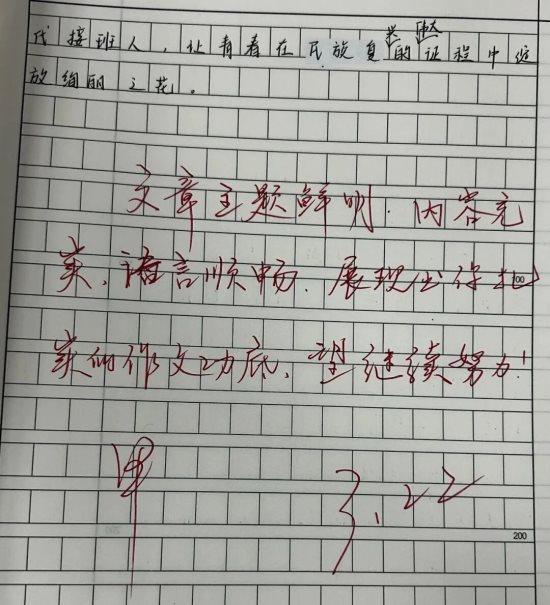 兴 伟大
代接班人，让青春在民族复的征程中绽
放绚丽之花。
文章主题鲜明.内容充
实、语言顺畅.展现出你扎
实的作文功底、望继续努力!
100
甲 3.22
200